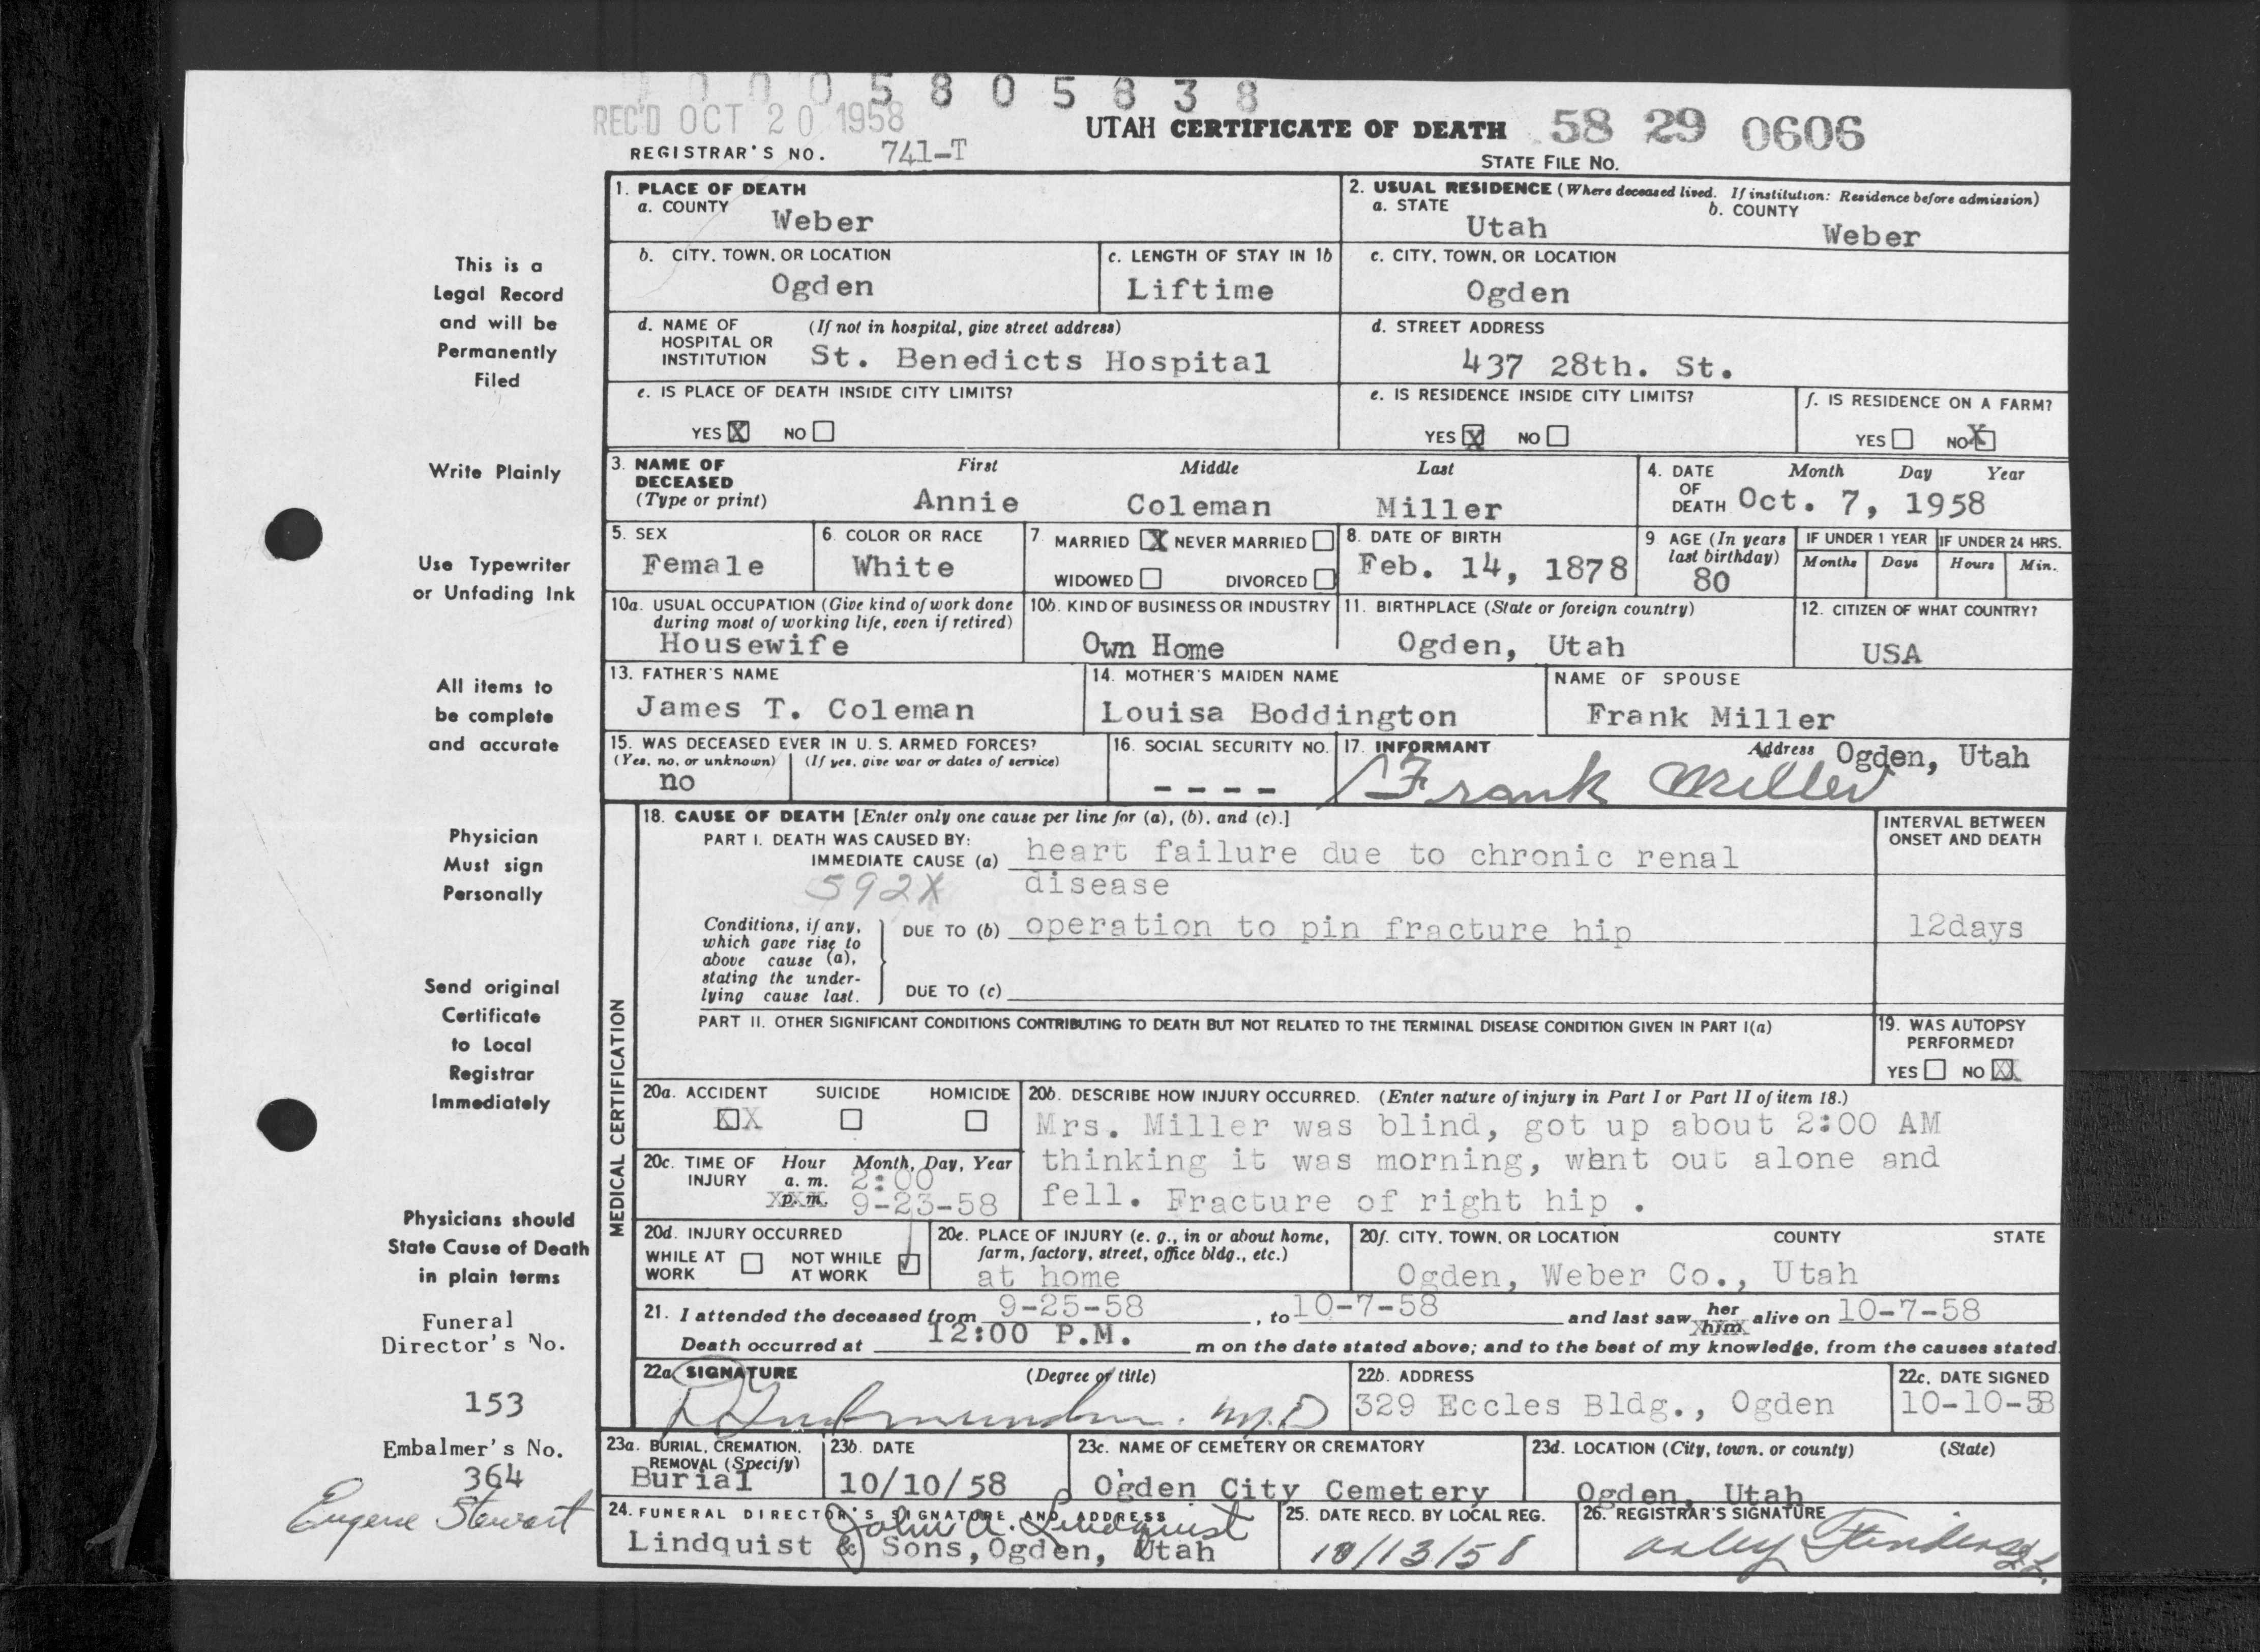 0005805838
REC'D OCT 20 1958
UTAH CERTIFICATE OF DEATH 58 29 0606
REGISTRAR'S NO. 741-T
STATE FILE NO.
1. PLACE OF DEATH
a. COUNTY Weber
2. USUAL RESIDENCE (Where deceased lived. If institution: Residence before admission)
a. STATE Utah b. COUNTY Weber
b. CITY, TOWN, OR LOCATION Ogden
c. LENGTH OF STAY IN 1b Liftime
c. CITY, TOWN, OR LOCATION Ogden
d. NAME OF HOSPITAL OR INSTITUTION (If not in hospital, give street address) St. Benedicts Hospital
d. STREET ADDRESS 437 28th. St.
e. IS PLACE OF DEATH INSIDE CITY LIMITS?
YES X NO
e. IS RESIDENCE INSIDE CITY LIMITS?
YES X NO
f. IS RESIDENCE ON A FARM?
YES NO X
3. NAME OF DECEASED (Type or print) First Middle Last
Annie Coleman Miller
4. DATE OF DEATH Month Day Year
Oct. 7, 1958
5. SEX Female
6. COLOR OR RACE White
7. MARRIED X NEVER MARRIED
WIDOWED DIVORCED
8. DATE OF BIRTH Feb. 14, 1878
9. AGE (In years last birthday) 80
IF UNDER 1 YEAR Months Days
IF UNDER 24 HRS. Hours Min.
10a. USUAL OCCUPATION (Give kind of work done during most of working life, even if retired) Housewife
10b. KIND OF BUSINESS OR INDUSTRY Own Home
11. BIRTHPLACE (State or foreign country) Ogden, Utah
12. CITIZEN OF WHAT COUNTRY? USA
13. FATHER'S NAME James T. Coleman
14. MOTHER'S MAIDEN NAME Louisa Boddington
NAME OF SPOUSE Frank Miller
15. WAS DECEASED EVER IN U. S. ARMED FORCES?
(Yes, no, or unknown) (If yes, give war or dates of service)
no
16. SOCIAL SECURITY NO. ----
17. INFORMANT Frank Miller Address Ogden, Utah
MEDICAL CERTIFICATION
18. CAUSE OF DEATH [Enter only one cause per line for (a), (b), and (c).]
INTERVAL BETWEEN ONSET AND DEATH
PART I. DEATH WAS CAUSED BY:
IMMEDIATE CAUSE (a) heart failure due to chronic renal
592X disease
Conditions, if any, which gave rise to above cause (a), stating the underlying cause last.
DUE TO (b) operation to pin fracture hip 12days
DUE TO (c)
PART II. OTHER SIGNIFICANT CONDITIONS CONTRIBUTING TO DEATH BUT NOT RELATED TO THE TERMINAL DISEASE CONDITION GIVEN IN PART I(a)
19. WAS AUTOPSY PERFORMED?
YES NO XX
20a. ACCIDENT SUICIDE HOMICIDE
XX
20b. DESCRIBE HOW INJURY OCCURRED. (Enter nature of injury in Part I or Part II of item 18.)
Mrs. Miller was blind, got up about 2:00 AM
thinking it was morning, went out alone and
fell. Fracture of right hip .
20c. TIME OF INJURY Hour Month, Day, Year
a. m. 2:00
XXX p. m. 9-23-58
20d. INJURY OCCURRED
WHILE AT WORK NOT WHILE AT WORK ✓
20e. PLACE OF INJURY (e. g., in or about home, farm, factory, street, office bldg., etc.)
at home
20f. CITY, TOWN, OR LOCATION COUNTY STATE
Ogden, Weber Co., Utah
21. I attended the deceased from 9-25-58, to 10-7-58 and last saw her him XXX alive on 10-7-58
Death occurred at 12:00 P.M. m on the date stated above; and to the best of my knowledge, from the causes stated.
22a. SIGNATURE (Degree or title)
M.D
22b. ADDRESS
329 Eccles Bldg., Ogden
22c. DATE SIGNED
10-10-58
23a. BURIAL, CREMATION, REMOVAL (Specify)
Burial
23b. DATE
10/10/58
23c. NAME OF CEMETERY OR CREMATORY
Ogden City Cemetery
23d. LOCATION (City, town, or county) (State)
Ogden, Utah
24. FUNERAL DIRECTOR'S SIGNATURE AND ADDRESS
John A. Lindquist
Lindquist & Sons, Ogden, Utah
25. DATE RECD. BY LOCAL REG.
10/13/58
26. REGISTRAR'S SIGNATURE
This is a
Legal Record
and will be
Permanently
Filed
Write Plainly
Use Typewriter
or Unfading Ink
All items to
be complete
and accurate
Physician
Must sign
Personally
Send original
Certificate
to Local
Registrar
Immediately
Physicians should
State Cause of Death
in plain terms
Funeral
Director's No.
153
Embalmer's No.
364
Eugene Stewart